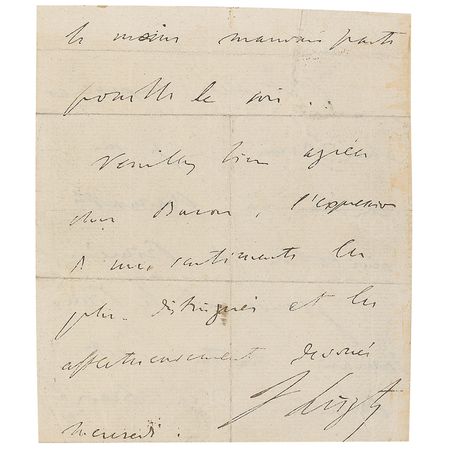 le moins mauvais parti
possible ce soir ..
Veuillez bien agréer
cher Baron, l'expression
de mes sentiments les
plus distingués et les
affectueusement dévoués
F Liszt
Mercredi.